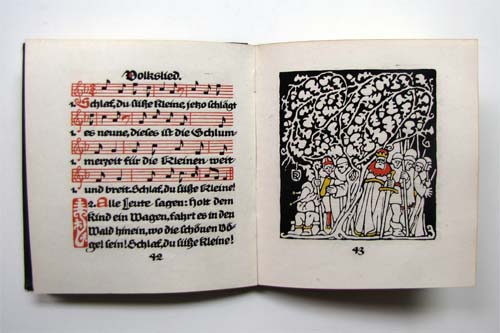 Volkslied.
1. Schlaf, du süße Kleine, jetzo schlägt
1. es neune, dieses ist die Schlum⸗
1. merzeit für die Kleinen weit
1. und breit. Schlaf, du süße Kleine!
2. Alle Leute sagen: holt dem
Kind ein Wagen, fahrt es in den
Wald hinein, wo die schönen Vö⸗
gel sein! Schlaf, du süße Kleine!
42
43